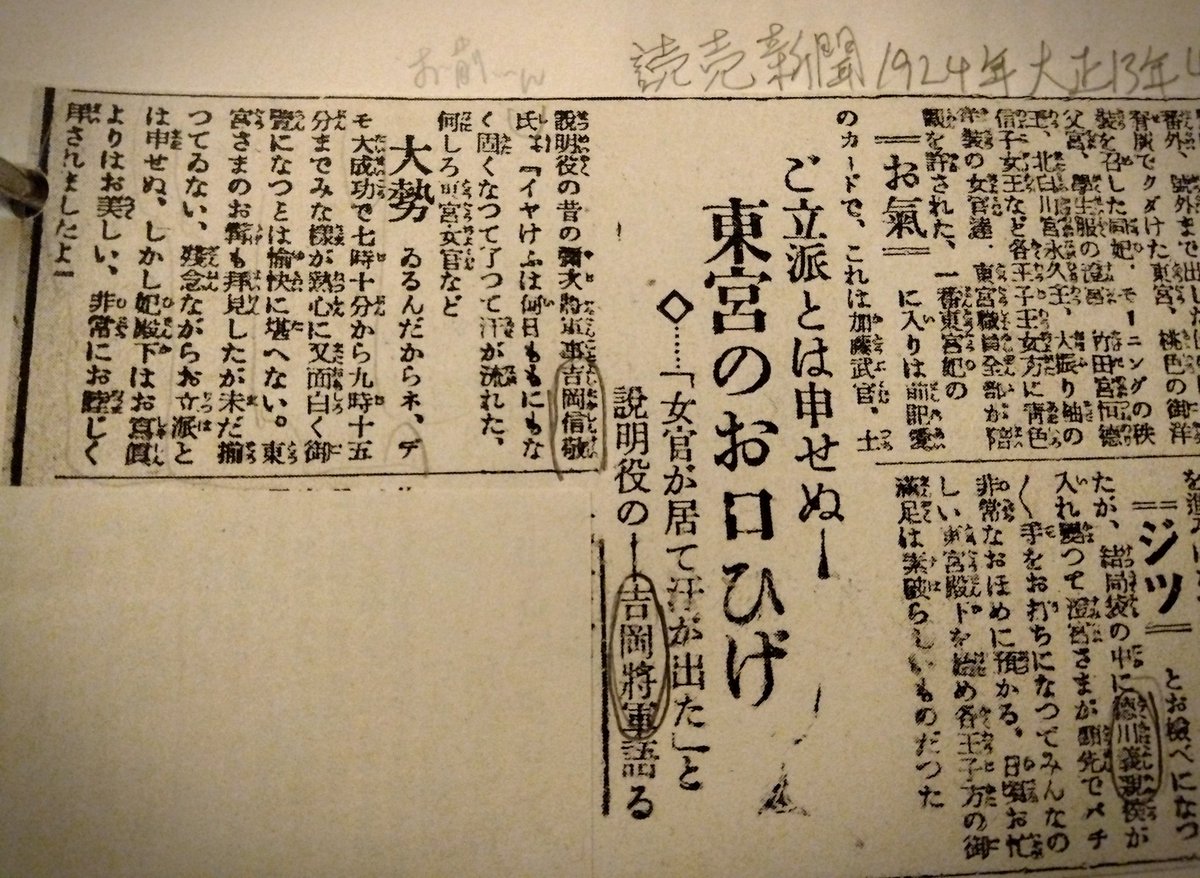 読売新聞 1924年 大正13年4
番外、號外まで出
父宮、學生服の澄宮、竹田宮恒德
王、北白川宮永久王、大振り袖の
信子女王など各王子王女方に青色
洋裝の女官達、東宮職員全部が陪
觀を許された、一番東宮妃の
＝お氣＝
に入りは前記愛
のカードで、これは加藤武官、土
＝ジツ＝
とお檢べになつ
たが、結局袋の中に德川義親侯が
入れ變つて澄宮さまが眞先でパチ
〱手をお打ちになつてみんなの
非常なおほめに預かる。日頃お忙
しい東宮殿下を始め各王子方の御
滿足は素破らしいものだつた
ご立派とは申せぬ―
東宮のお口ひげ
◇……「女官が居て汗が出た」と
說明役の―吉岡將軍語る
說明役の昔の彌次將軍事吉岡信敬
氏は『イヤけふは何日もにもな
く固くなつて了つて汗が流れた、
何しろ東宮女官など
大勢
ゐるんだからネ、デ
モ大成功で七時十分から九時十五
分までみな樣が熱心に又面白く御
覽になつとは愉快に堪へない。東
宮さまのお髭も拜見したが未だ揃
つてゐない、殘念ながらお立派と
は申せぬ、しかし妃殿下はお寫眞
よりはお美しい、非常にお睦じく
拜されましたよ』